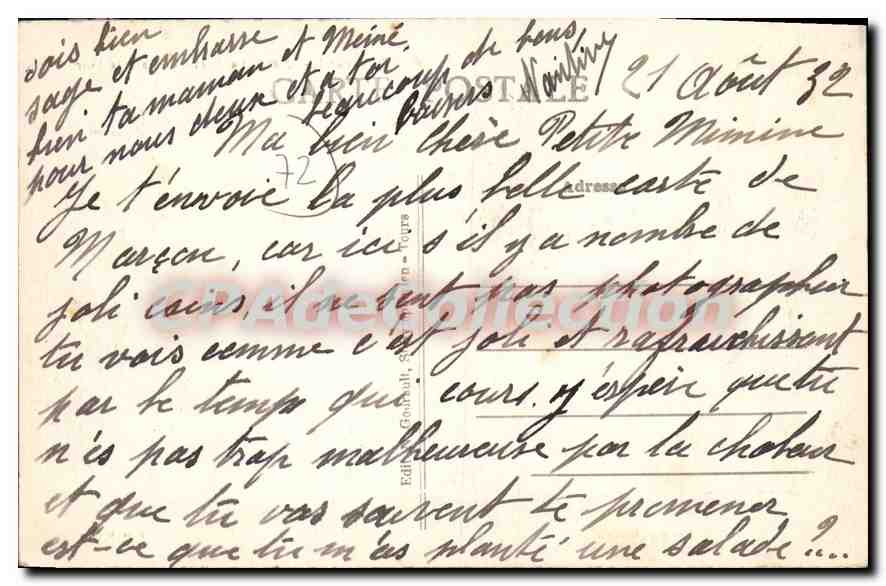 21 Août 32
Ma bien chère Petite Mimine
Je t'envoie la plus belle carte de
Marçon, car ici s'il y a nombre de
joli coins, il ne vient pas photographeur
tu vois comme c'est joli et rafraichissant
par le temps qui cours. j'espère que tu
n'es pas trop malheureuse par la chaleur
et que tu vas souvent te promener
est-ce que tu m'as planté une salade ?...
sois bien
sage et embrasse
bien ta maman et Mémé
pour nous deux et a toi
beaucoup de bons
baisers
CARTE POSTALE
Adresse
72
Edit. Gouault, Tours
CPAdeCollection